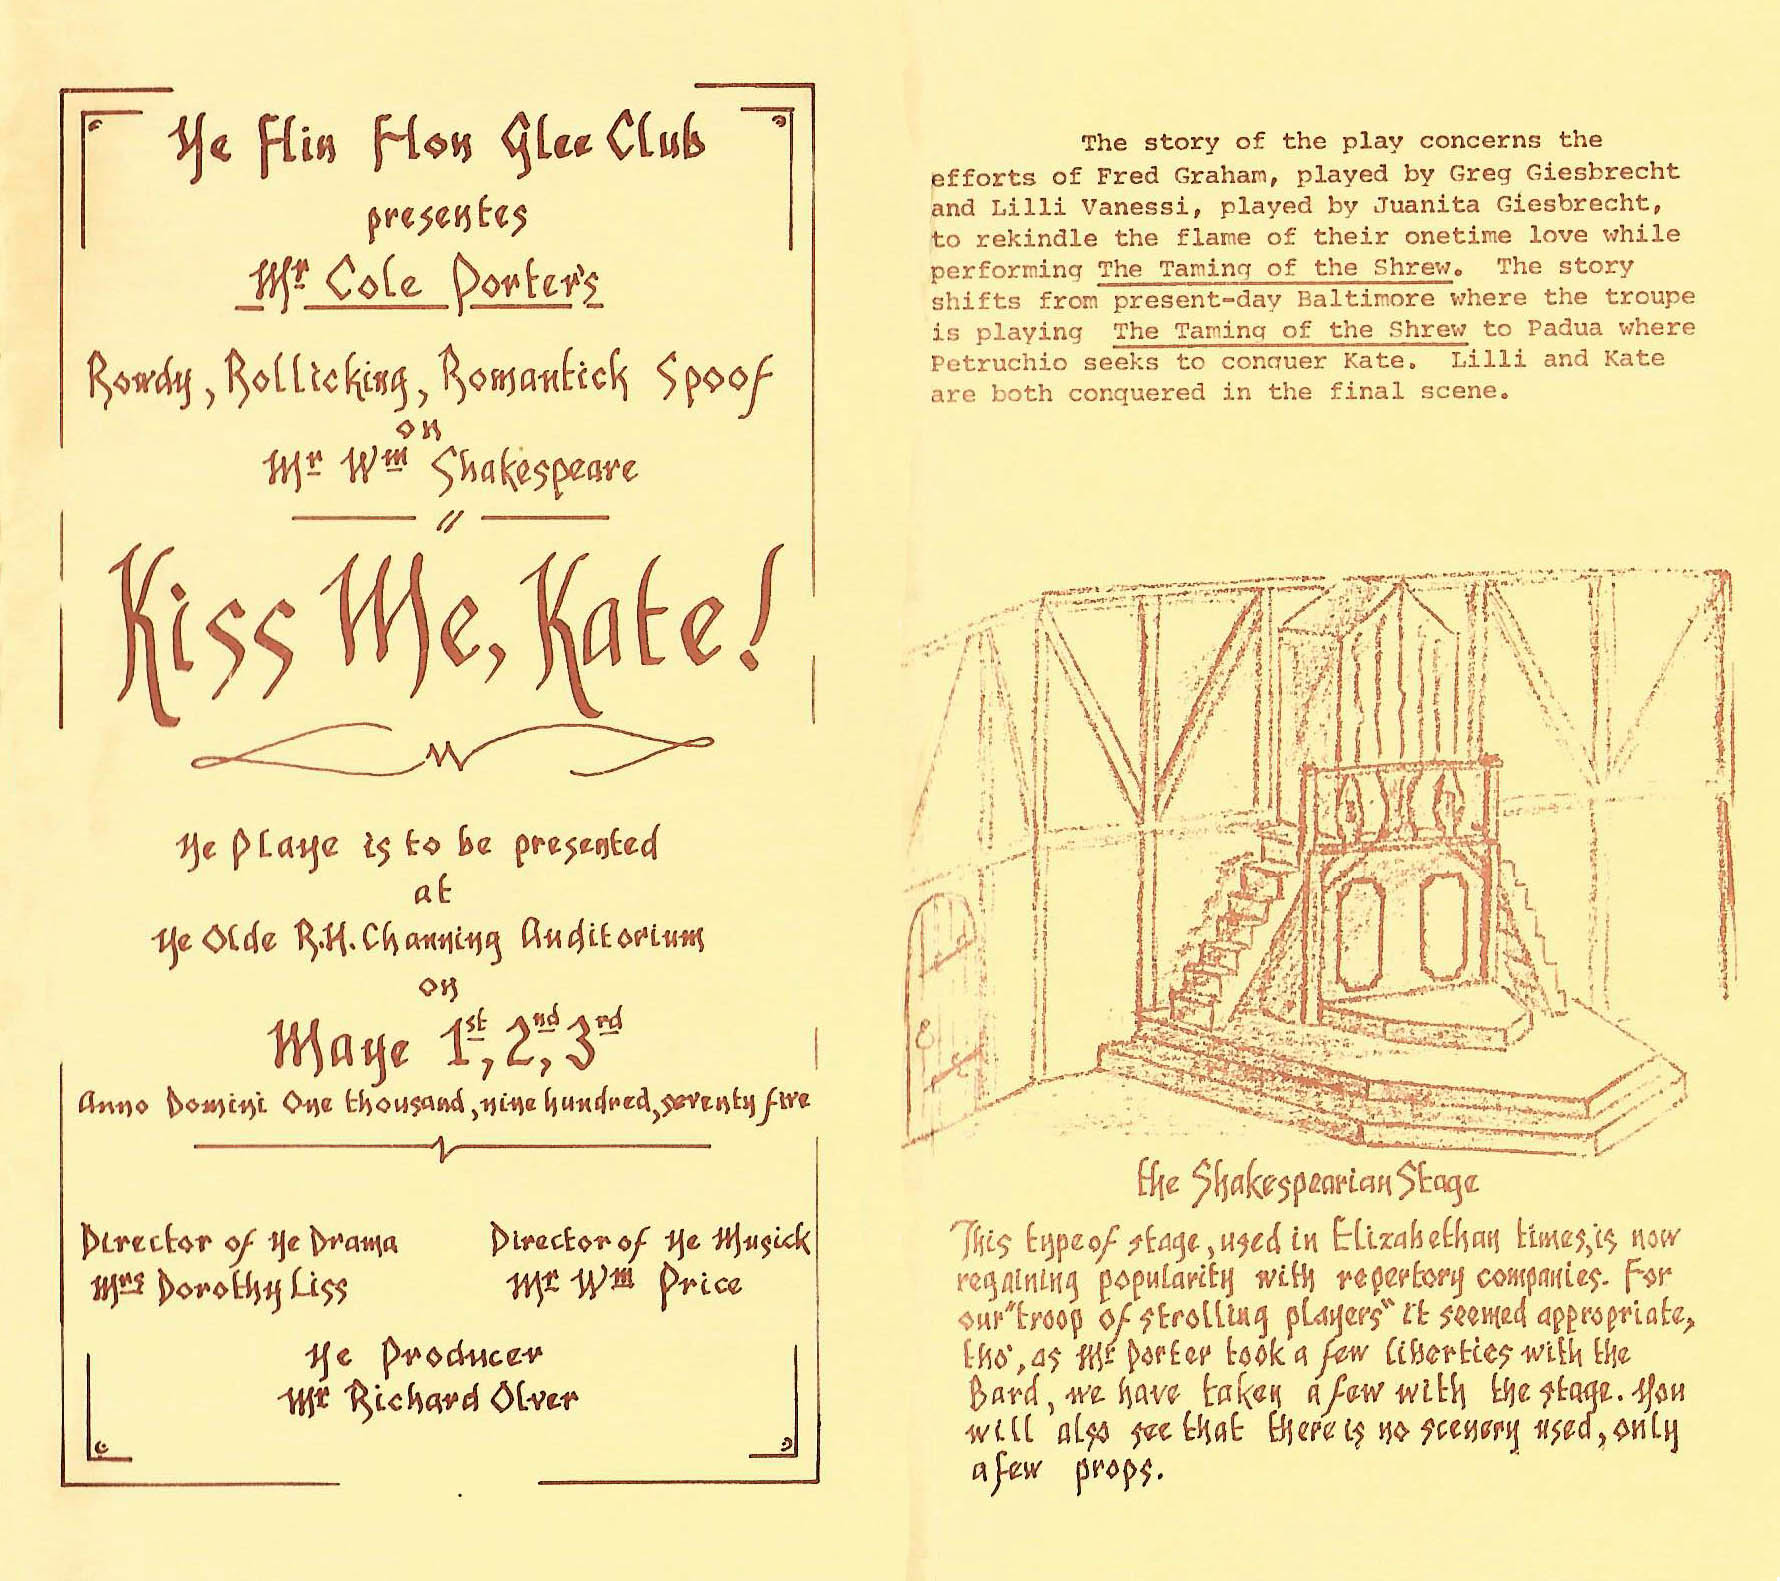 Ye Flin Flon Glee Club
presentes
Mr Cole Porter's
Rowdy, Rollicking, Romantick Spoof
on
Mr Wm Shakespeare
Kiss Me, Kate!
Ye Playe is to be presented
at
Ye Olde R.H. Channing Auditorium
on
Maye 1st, 2nd, 3rd
Anno Domini One thousand, nine hundred, seventy five
Director of Ye Drama
Mrs Dorothy Liss
Director of Ye Musick
Mr Wm Price
Ye Producer
Mr Richard Olver
The story of the play concerns the
efforts of Fred Graham, played by Greg Giesbrecht
and Lilli Vanessi, played by Juanita Giesbrecht,
to rekindle the flame of their onetime love while
performing The Taming of the Shrew. The story
shifts from present-day Baltimore where the troupe
is playing The Taming of the Shrew to Padua where
Petruchio seeks to conquer Kate. Lilli and Kate
are both conquered in the final scene.
the Shakespearian Stage
This type of stage, used in Elizabethan times, is now
regaining popularity with repertory companies. For
our "troop of strolling players" it seemed appropriate,
tho', as Mr Porter took a few liberties with the
Bard, we have taken a few with the stage. You
will also see that there is no scenery used, only
a few props.